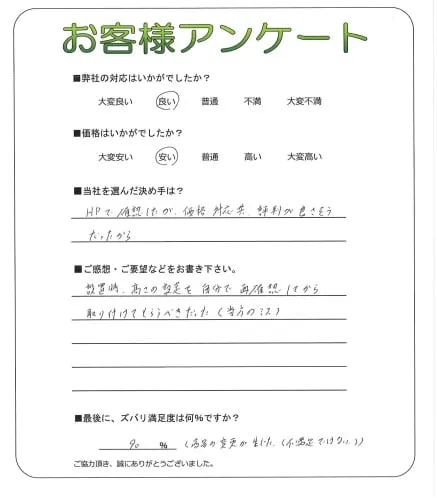 お客様アンケート
■弊社の対応はいかがでしたか?
大変良い 良い 普通 不満 大変不満
■価格はいかがでしたか?
大変安い 安い 普通 高い 大変高い
■当社を選んだ決め手は?
HPで確認したが、価格 対応共、評判が良さそう
だったから
■ご感想・ご要望などをお書き下さい。
設置時、高さの設定を自分で再確認してから
取り付けてもらうべきだった(当方のミス)
■最後に、ズバリ満足度は何%ですか?
90 % (高さの変更が生じた、(不満足ではない))
ご協力頂き、誠にありがとうございました。